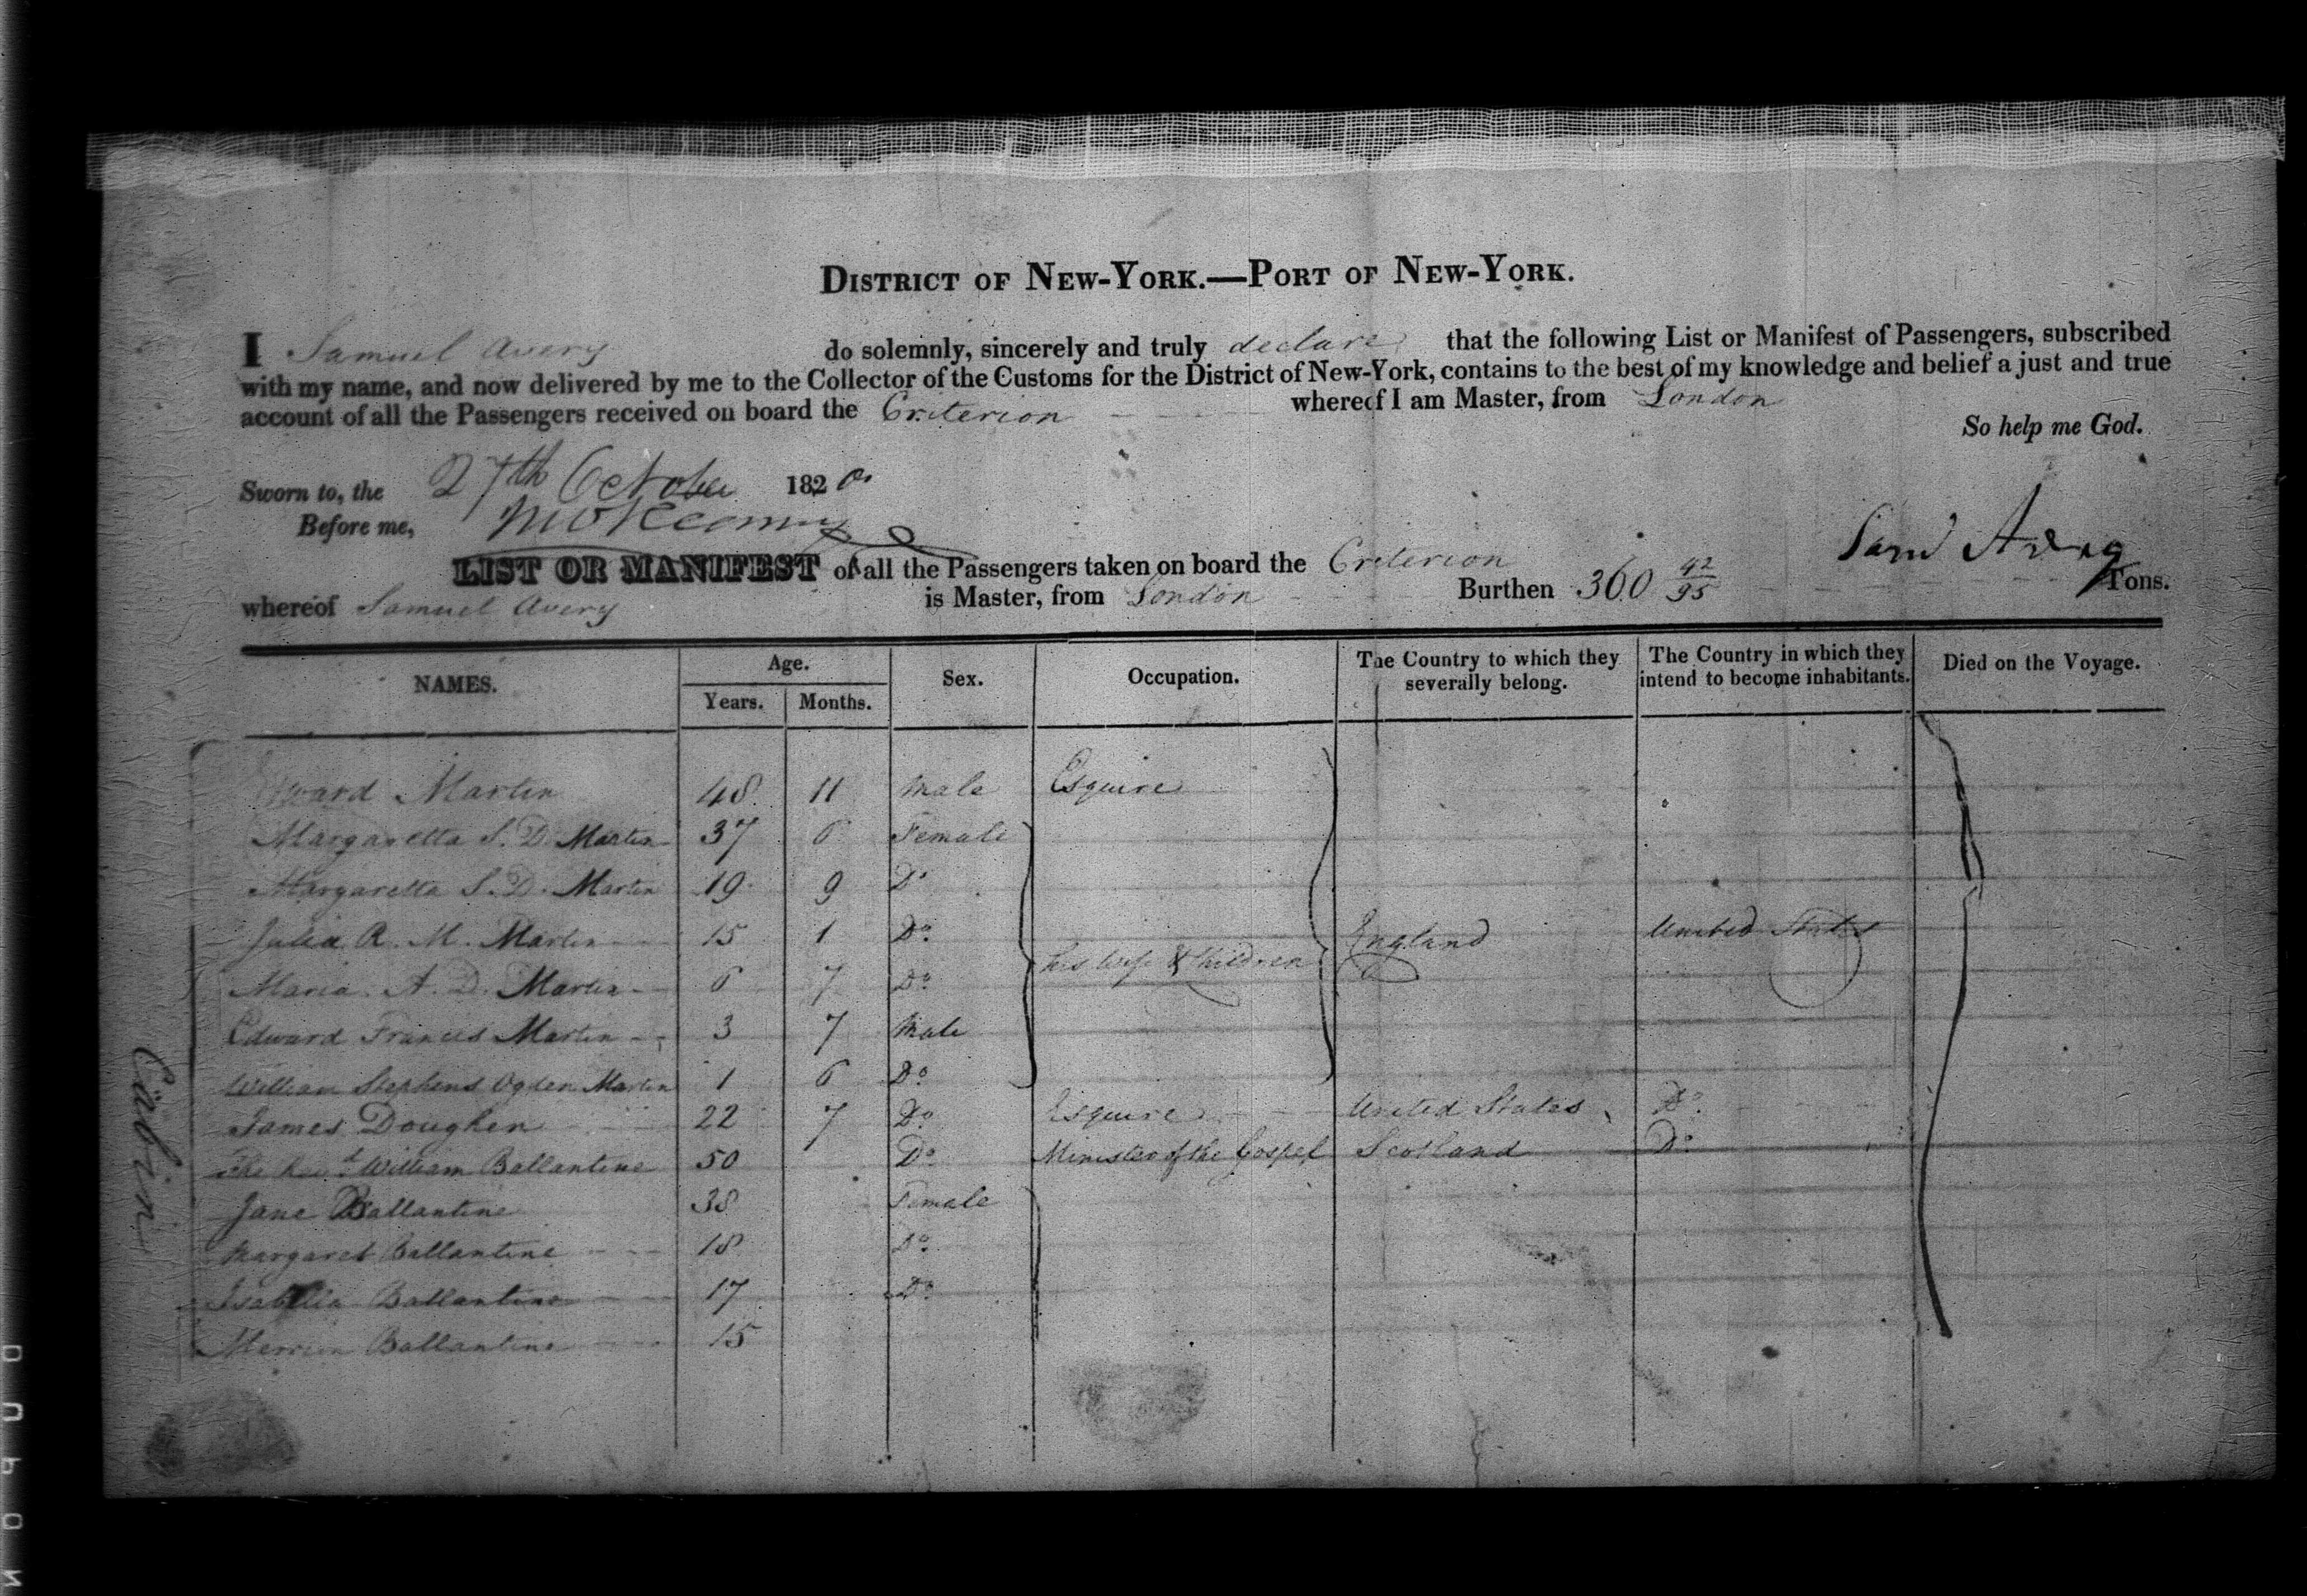 DISTRICT OF NEW-YORK.—PORT OF NEW-YORK.
I Samuel Avery do solemnly, sincerely and truly declare that the following List or Manifest of Passengers, subscribed
with my name, and now delivered by me to the Collector of the Customs for the District of New-York, contains to the best of my knowledge and belief a just and true
account of all the Passengers received on board the Criterion whereof I am Master, from London
So help me God.
Sworn to, the 27th October 1820.
Before me,
Saml Avery
LIST OR MANIFEST of all the Passengers taken on board the Criterion
whereof Samuel Avery is Master, from London Burthen 360 42/95 Tons.
NAMES. Age. Years. Months. Sex. Occupation. The Country to which they severally belong. The Country in which they intend to become inhabitants. Died on the Voyage.
Cabin
Martin 48 11 Male Esquire
Margaretta S. D. Martin 37 6 Female
Margaretta S. D. Martin 19 9 Do
Julia R. M. Martin 15 1 Do
his wife & Children England United States
Maria A. D. Martin 6 7 Do
Edward Francis Martin 3 7 Male
William Stephens Ogden Martin 1 6 Do
James Dougher 22 7 Do Esquire United States Do
The Revd William Ballantine 50 Do Minister of the Gospel Scotland Do
Jane Ballantine 38 Female
Margaret Ballantine 18 Do
Isabella Ballantine 17 Do
Ballantine 15